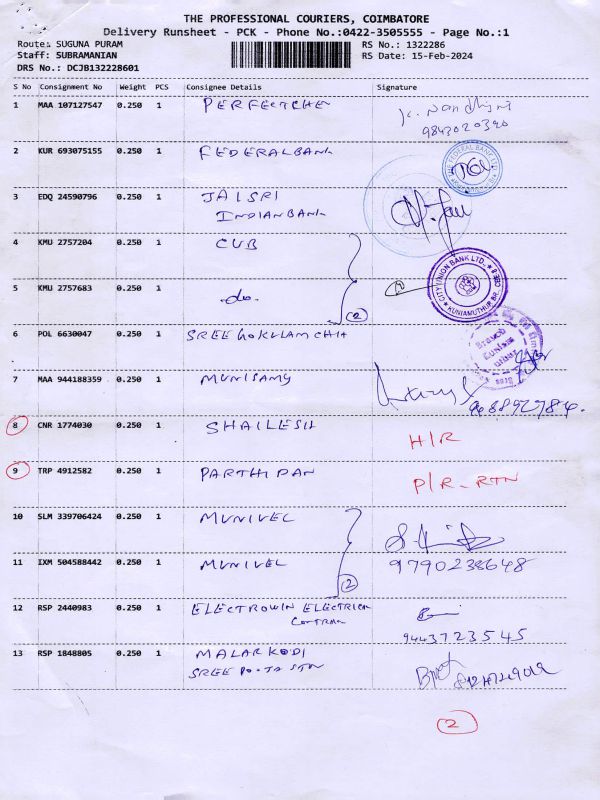 THE PROFESSIONAL COURIERS, COIMBATORE
Delivery Runsheet - PCK - Phone No.:0422-3505555 - Page No.:1
Route: SUGUNA PURAM
RS No.: 1322286
Staff: SUBRAMANIAN
RS Date: 15-Feb-2024
DRS No.: DCJB132228601
S No Consignment No Weight PCS Consignee Details Signature
1 MAA 107127547 0.250 1
9843020390
2 KUR 693075155 0.250 1 FEDERALBANK
THE FEDERAL BANK LTD
3 EDQ 24590796 0.250 1 JAISRI
INDIANBANK
4 KMU 2757204 0.250 1 CUB
CITY UNION BANK LTD.,
KUNIAMUTHUR BR.
5 KMU 2757683 0.250 1 -do-
2
6 POL 6630047 0.250 1 SREE GOKULAM CHIT
Branch
7 MAA 944188359 0.250 1 MUNISAMY
8 CNR 1774030 0.250 1 SHAILESH H/R
9 TRP 4912582 0.250 1 PARTHIPAN P/R-RTN
10 SLM 339706424 0.250 1 MUNIVEL
11 IXM 504588442 0.250 1 MUNIVEL 9790238648
2
12 RSP 2440983 0.250 1 ELECTROWIN ELECTRICA
9443723545
13 RSP 1848805 0.250 1 MALARKODI
SREE
2